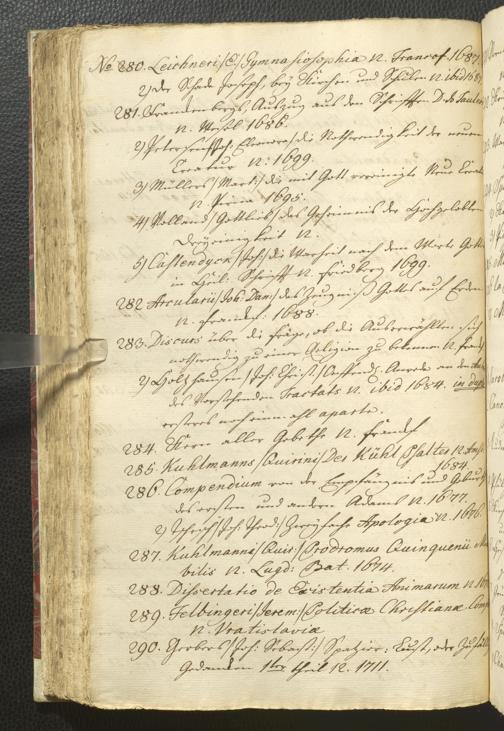 No 280. Leichneri /E/ Gymnasiosophia 12. Francof. 1687.
2) der Josephs, bey Kirchen und Schulen 12 ibid 168
281. Brandenbergs Auszug aus den Schrifften D. Joh. Tauleri
12. Wesel 1686.
2) Petersen /Joh. Eleonora/ die Nothwendigkeit der neuen
Creatur 12. 1699.
3) Müllers /Mart:/ die mit Gott vereinigte Neue Creat
12. Pirna 1695.
4) Volland /Gottlieb/ das Geheimnis der Hochgelobten
Dreyeinigkeit 12.
5) Castendyck /Joh:/ die Warheit nach dem Worte Gottes
in Heil. Schrifft 12. Friedberg 1699.
282 Arcularii /Joh. Dan:/ das Zeugniß Gottes auf Erden
12. Franckf. 1688.
283. Discurs über die Frage, ob die Auserwählten sich
nothwendig zu einer Religion zu bekennen 12. Franckf
2) Holtzhausen /Joh: Christ:/ Anrede an den
des Vorstehenden Tractats 12. ibid 1684. in duplo
ersters noch einmahl aparte.
284. Kern aller Gebethe 12. Franckf
285. Kuhlmanns /Quirini/ Der Kühl Psalter 12. Amst
1684.
286. Compendium von der Empfängnis und Geburt
des ersten und andern Adams 12. 1677.
2) /Joh. Theod:/ Apologia 12. 1676.
287. Kuhlmanni /Quir:/ Prodromus Quinquenii
bilis 12. Lugd: Bat. 1674.
288. Dissertatio de Existentia Animarum 12.
289. Felbingeri /Jerem:/ Politicæ Christianæ Comp
12. Vratislaviæ
290. Gerbers /Joh: Sebast:/ Spatzier-Lust, oder
Gedancken 1ter Theil 12. 1711.